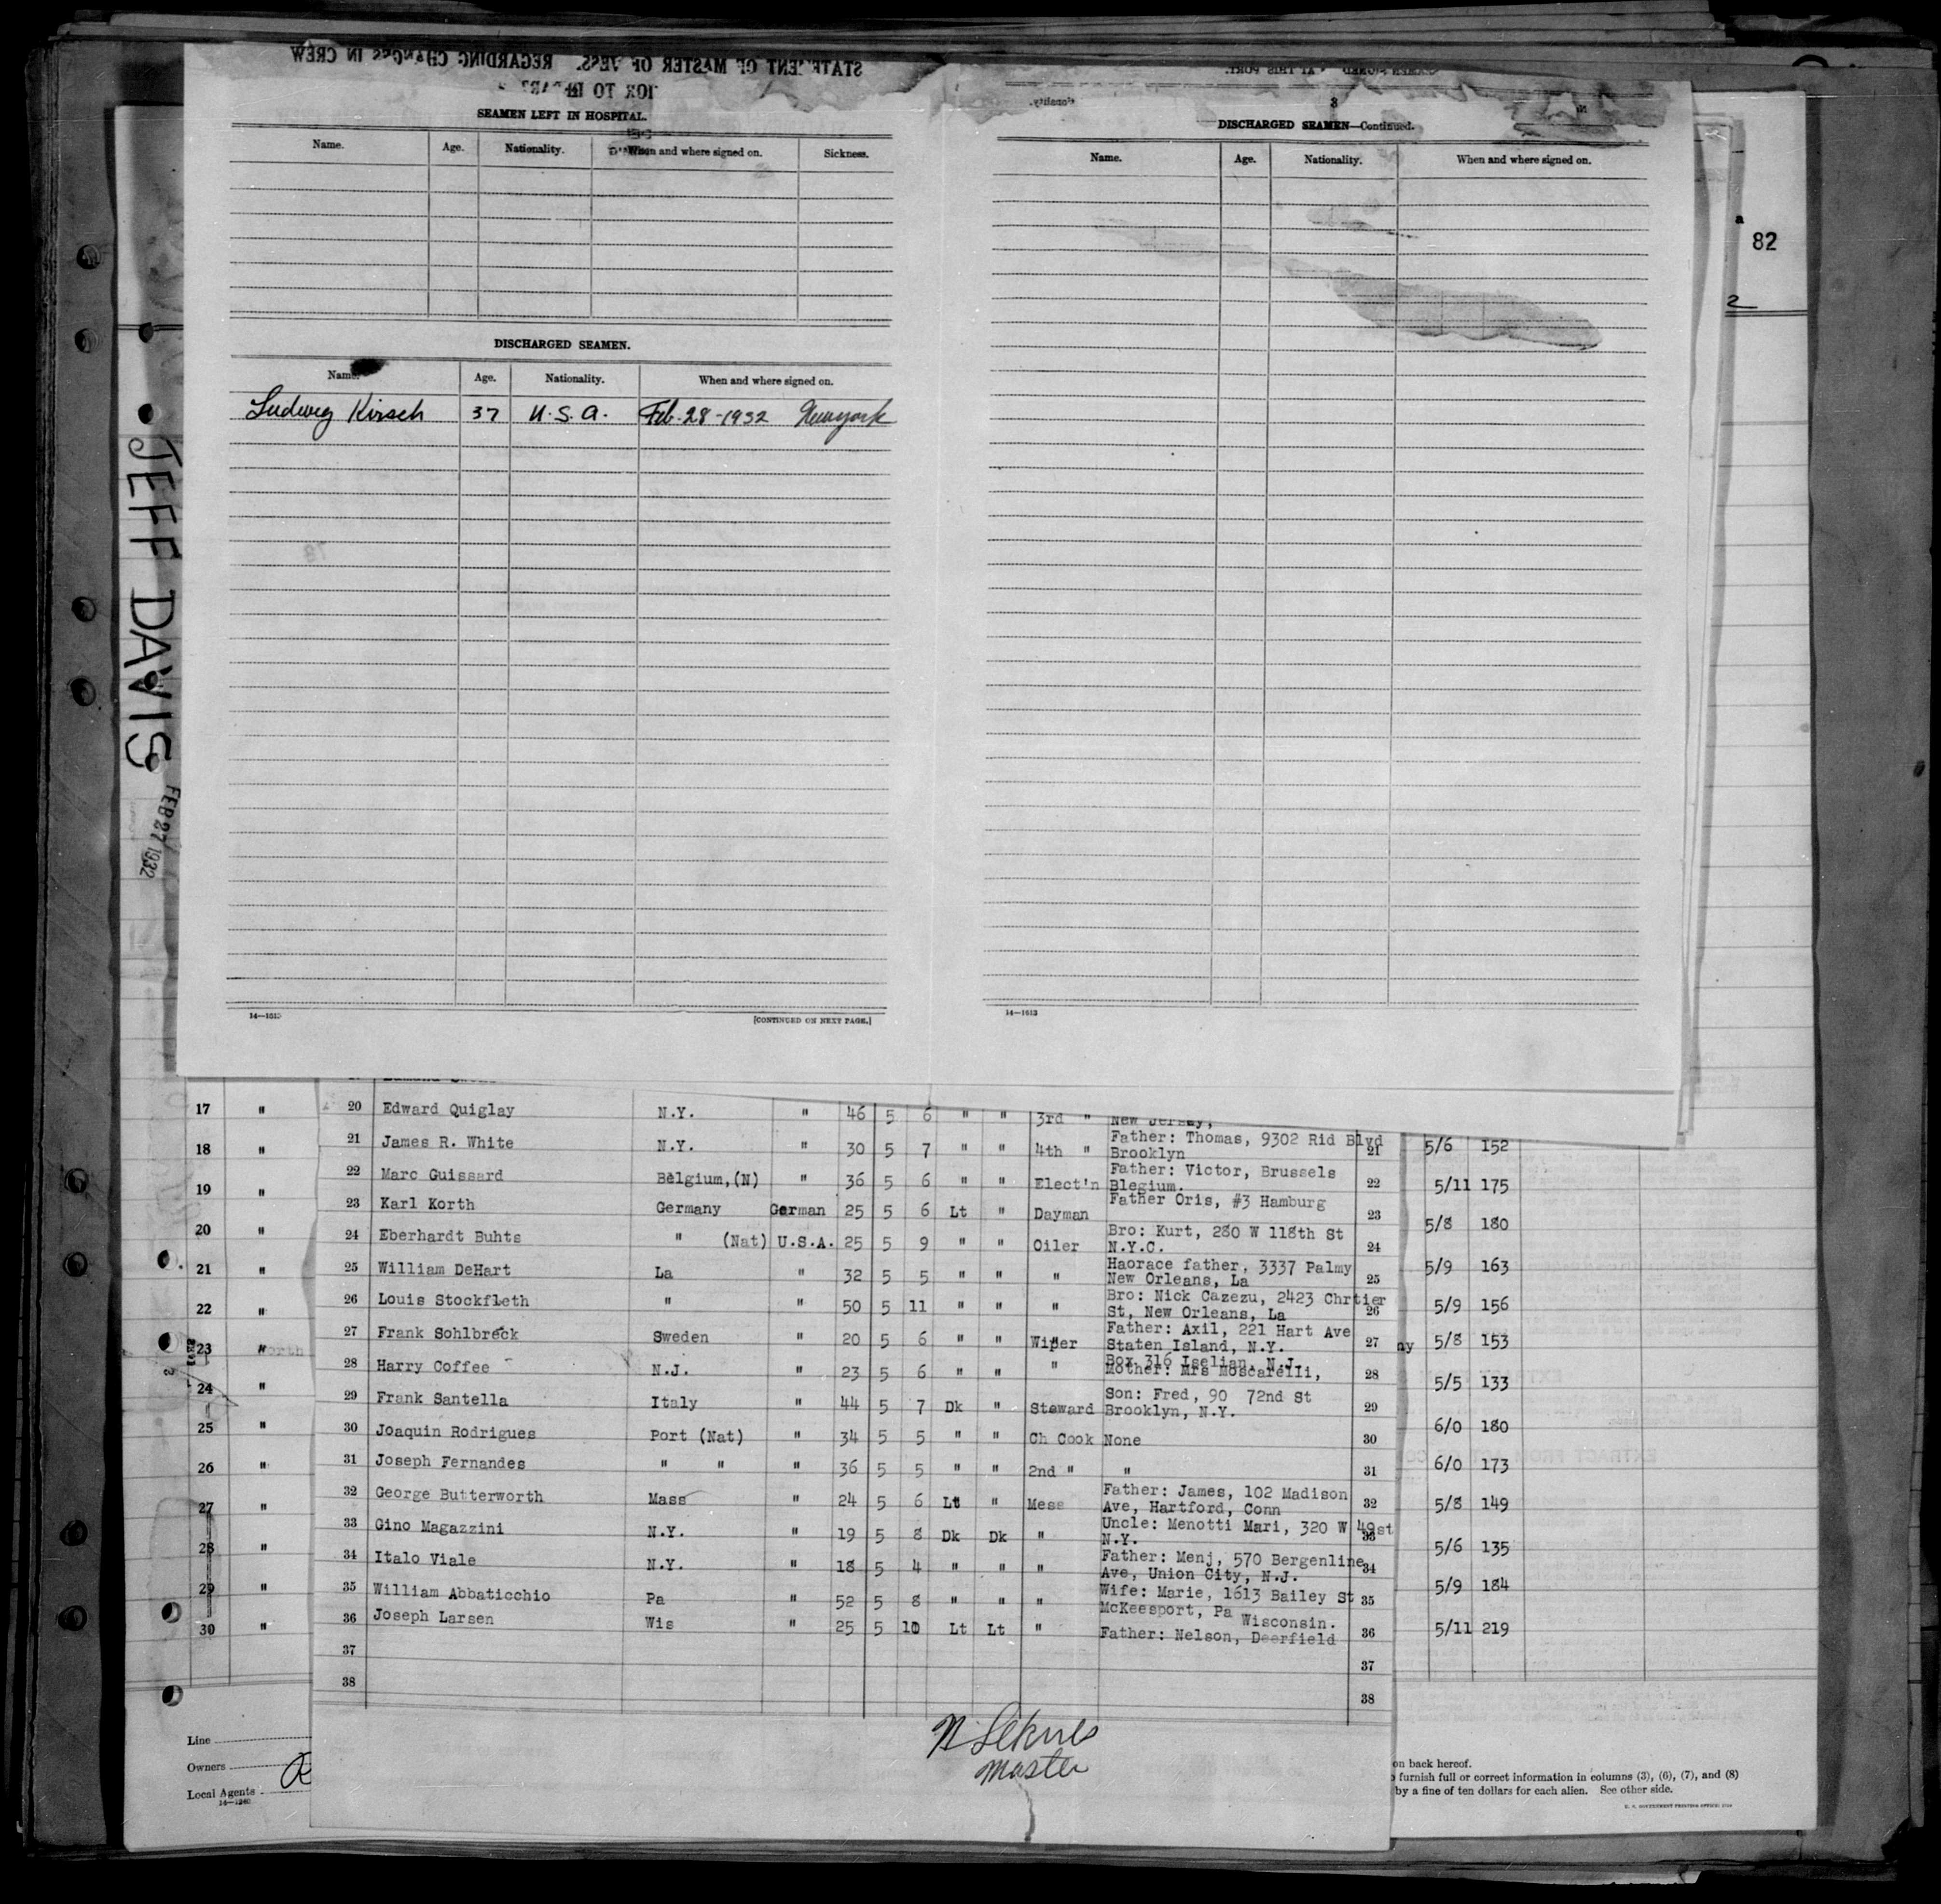 STATEMENT OF MASTER OF VESSEL REGARDING CHANGES IN CREW
SEAMEN LEFT IN HOSPITAL.
Name. Age. Nationality. When and where signed on. Sickness.
DISCHARGED SEAMEN.
Name. Age. Nationality. When and where signed on.
Ludwig Kirsch 37 U.S.A. Feb-28-1932 Newyork
14—1613
[CONTINUED ON NEXT PAGE.]
3
DISCHARGED SEAMEN—Continued.
Name. Age. Nationality. When and where signed on.
14—1613
82
2
JEFF DAVIS
FEB 27 1932
17 "
18 "
19 "
20 "
21 "
22 "
23 "
24 "
25 "
26 "
27 "
28 "
29 "
30 "
20 Edward Quiglay N.Y. " 46 5 6 " " 3rd " New Jersey,
21 James R. White N.Y. " 30 5 7 " " 4th " Father: Thomas, 9302 Rid Blvd
Brooklyn 21
22 Marc Guissard Belgium,(N) " 36 5 6 " " Elect'n Father: Victor, Brussels
Blegium. 22
23 Karl Korth Germany German 25 5 6 Lt " Dayman Father Oris, #3 Hamburg 23
24 Eberhardt Buhts " (Nat) U.S.A. 25 5 9 " " Oiler Bro: Kurt, 280 W 118th St
N.Y.C. 24
25 William DeHart La " 32 5 5 " " " Haorace father, 3337 Palmy
New Orleans, La 25
26 Louis Stockfleth " " 50 5 11 " " " Bro: Nick Cazezu, 2423 Chrtier
St, New Orleans, La 26
27 Frank Sohlbreck Sweden " 20 5 6 " " Wiper Father: Axil, 221 Hart Ave
Staten Island, N.Y. 27
28 Harry Coffee N.J. " 23 5 6 " " " Box 316 Iselian, N.J.
Mother: Mrs Moscarelli, 28
29 Frank Santella Italy " 44 5 7 Dk " Steward Son: Fred, 90 72nd St
Brooklyn, N.Y. 29
30 Joaquin Rodrigues Port (Nat) " 34 5 5 " " Ch Cook None 30
31 Joseph Fernandes " " " 36 5 5 " " 2nd " " 31
32 George Butterworth Mass " 24 5 6 Lt " Mess Father: James, 102 Madison
Ave, Hartford, Conn 32
33 Gino Magazzini N.Y. " 19 5 8 Dk Dk " Uncle: Menotti Mari, 320 W 49st
N.Y. 33
34 Italo Viale N.Y. " 18 5 4 " " " Father: Menj, 570 Bergenline
Ave, Union City, N.J. 34
35 William Abbaticchio Pa " 52 5 8 " " " Wife: Marie, 1613 Bailey St
McKeesport, Pa 35
36 Joseph Larsen Wis " 25 5 10 Lt Lt " Wisconsin.
Father: Nelson, Deerfield 36
37 37
38 38
5/6 152
5/11 175
5/8 180
5/9 163
5/9 156
ny 5/8 153
5/5 133
6/0 180
6/0 173
5/8 149
5/6 135
5/9 184
5/11 219
Master
Line
Owners
Local Agents
14—1240
on back hereof.
furnish full or correct information in columns (3), (6), (7), and (8)
by a fine of ten dollars for each alien. See other side.
U. S. GOVERNMENT PRINTING OFFICE: